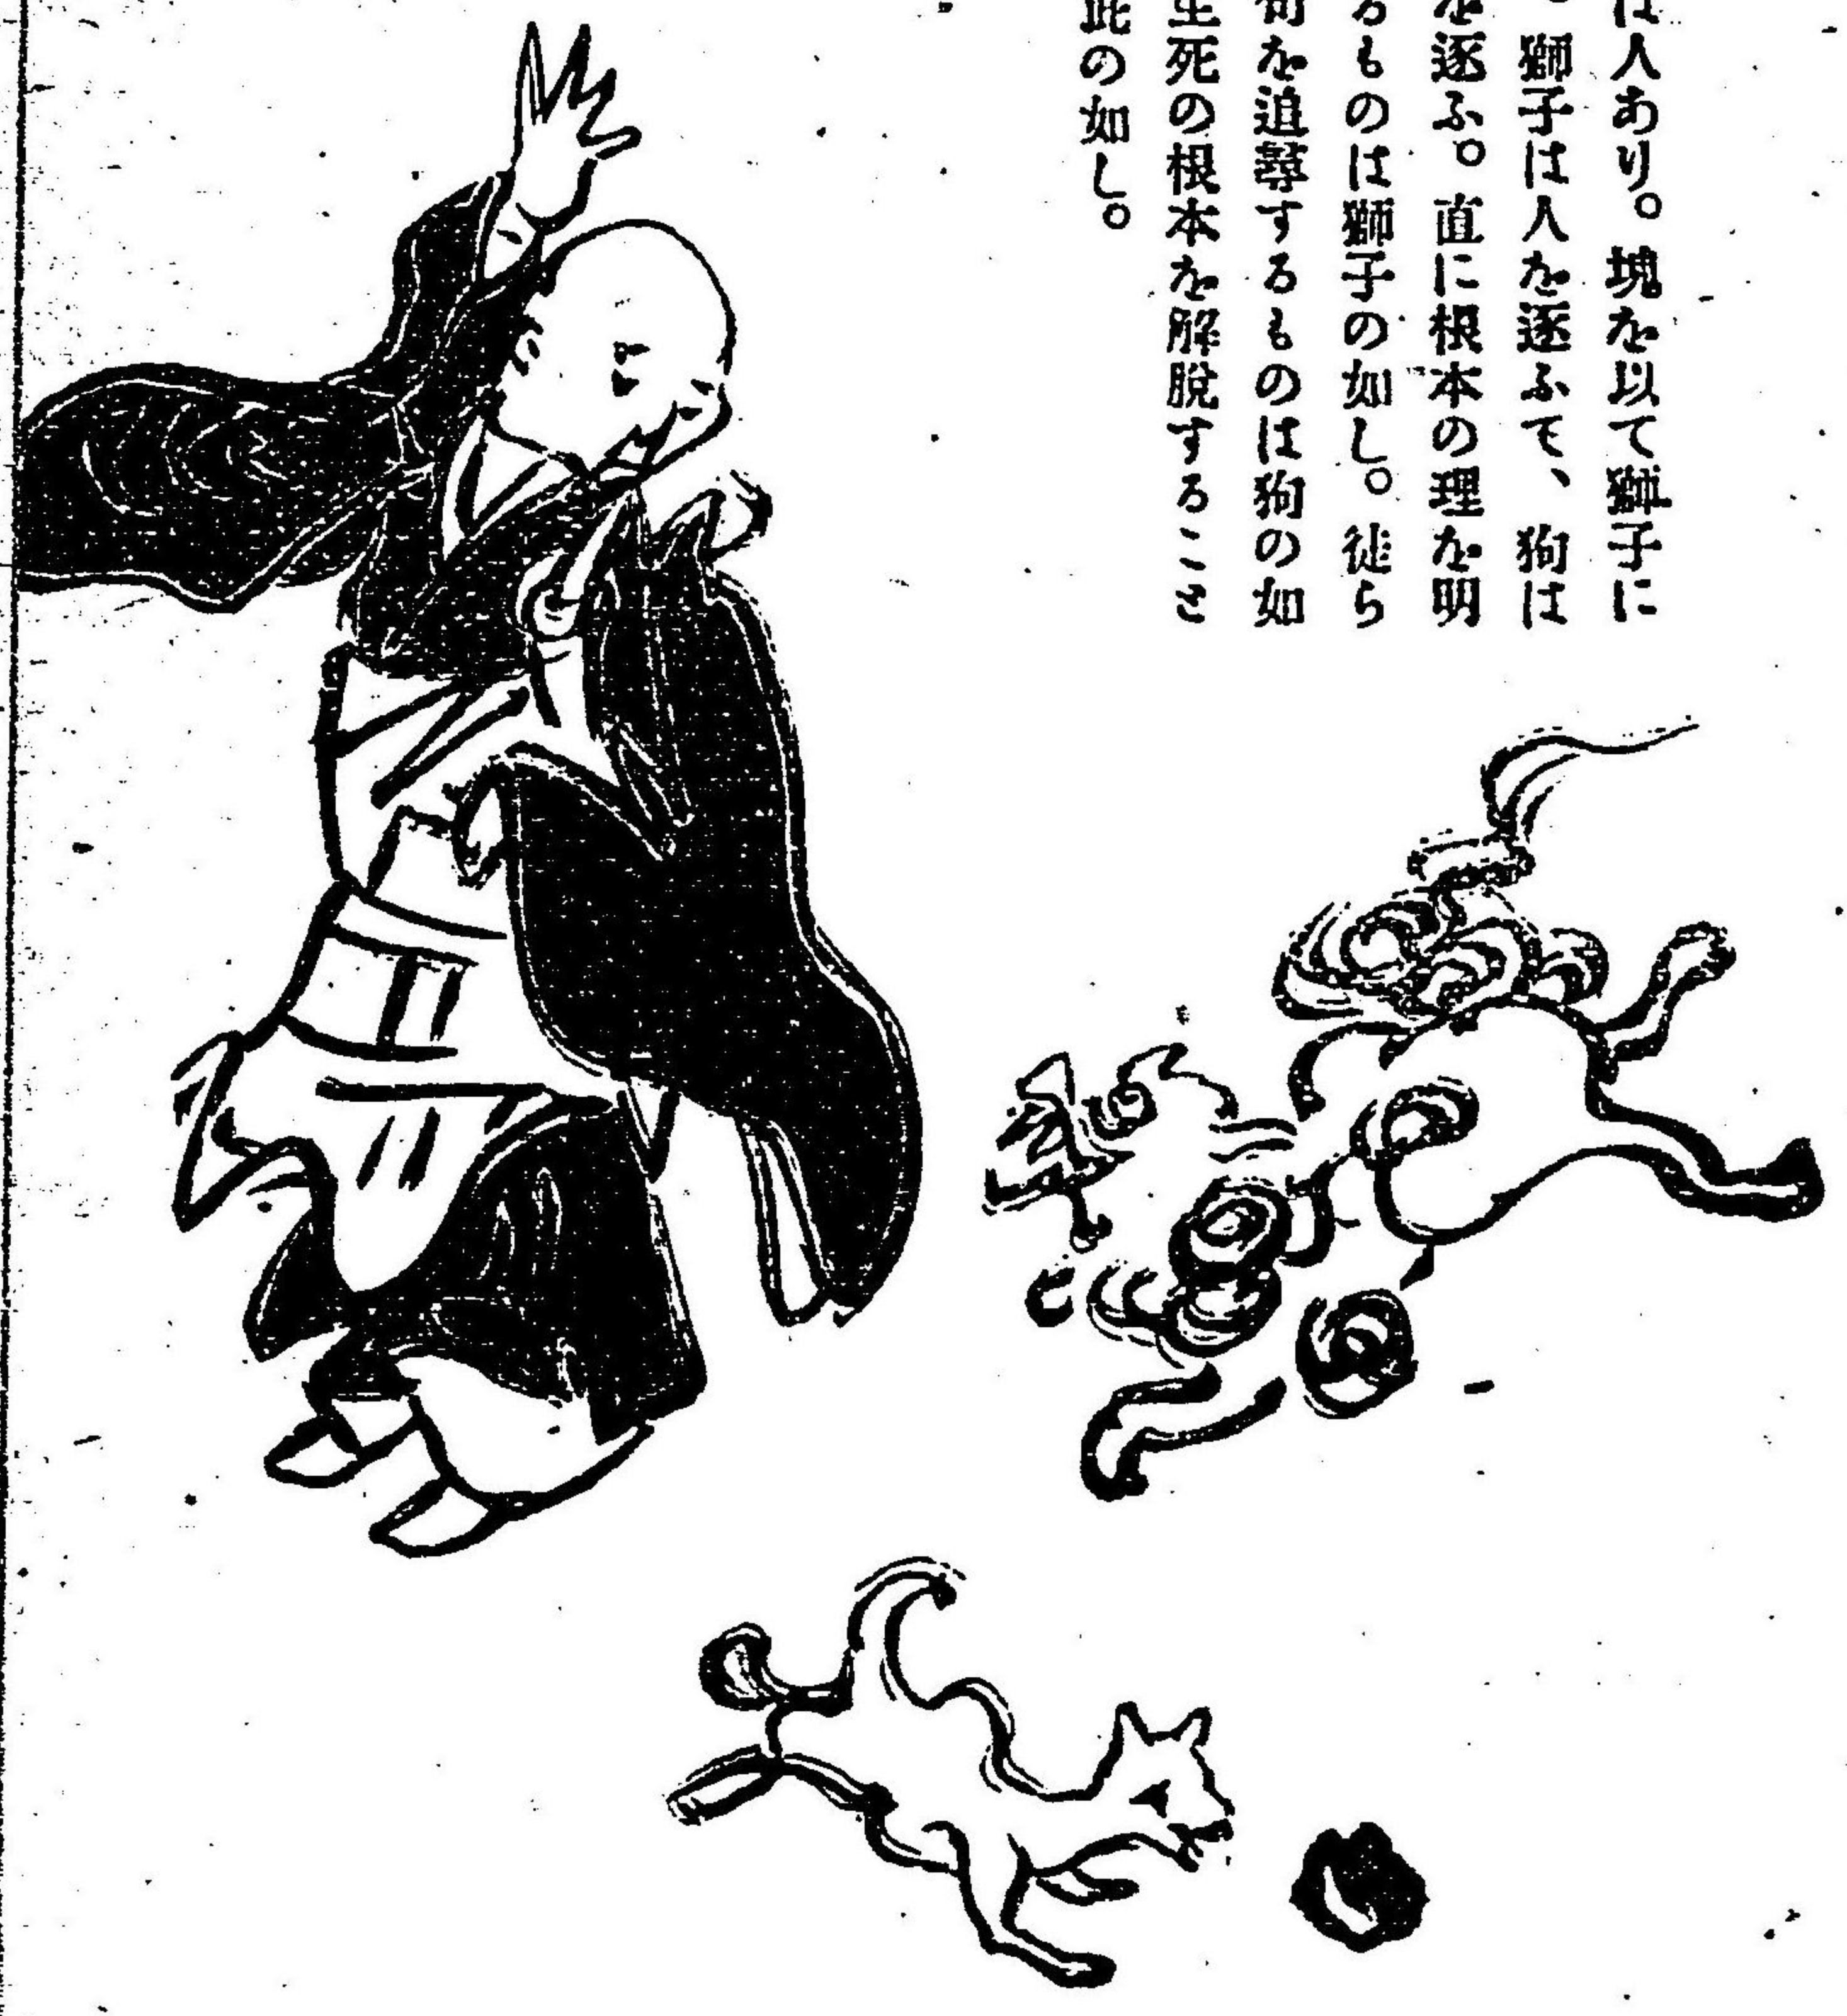 は人あり。塊を以て獅子に
。獅子は人を逐ふて、狗は
を逐ふ。直に根本の理を明
るものは獅子の如し。徒ら
句を追尋するものは狗の如
生死の根本を解脱すること
此の如し。